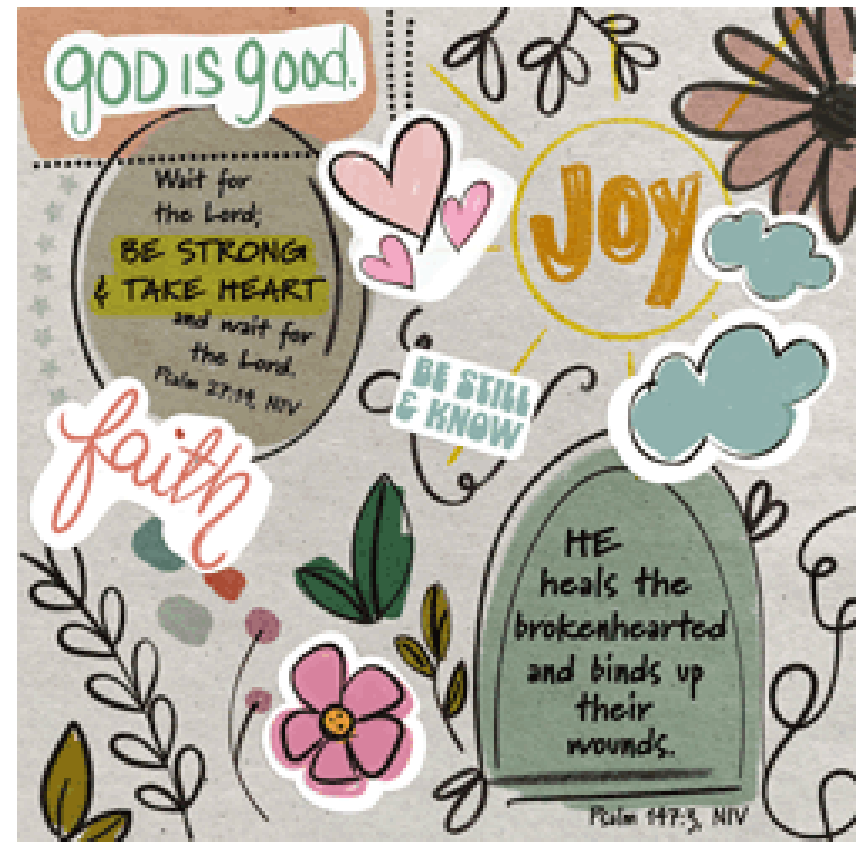 GOD IS good.
Wait for
the Lord;
BE STRONG
& TAKE HEART
and wait for
the Lord.
Psalm 27:14, NIV
Joy
BE STILL
& KNOW
faith
HE
heals the
brokenhearted
and binds up
their
wounds.
Psalm 147:3, NIV